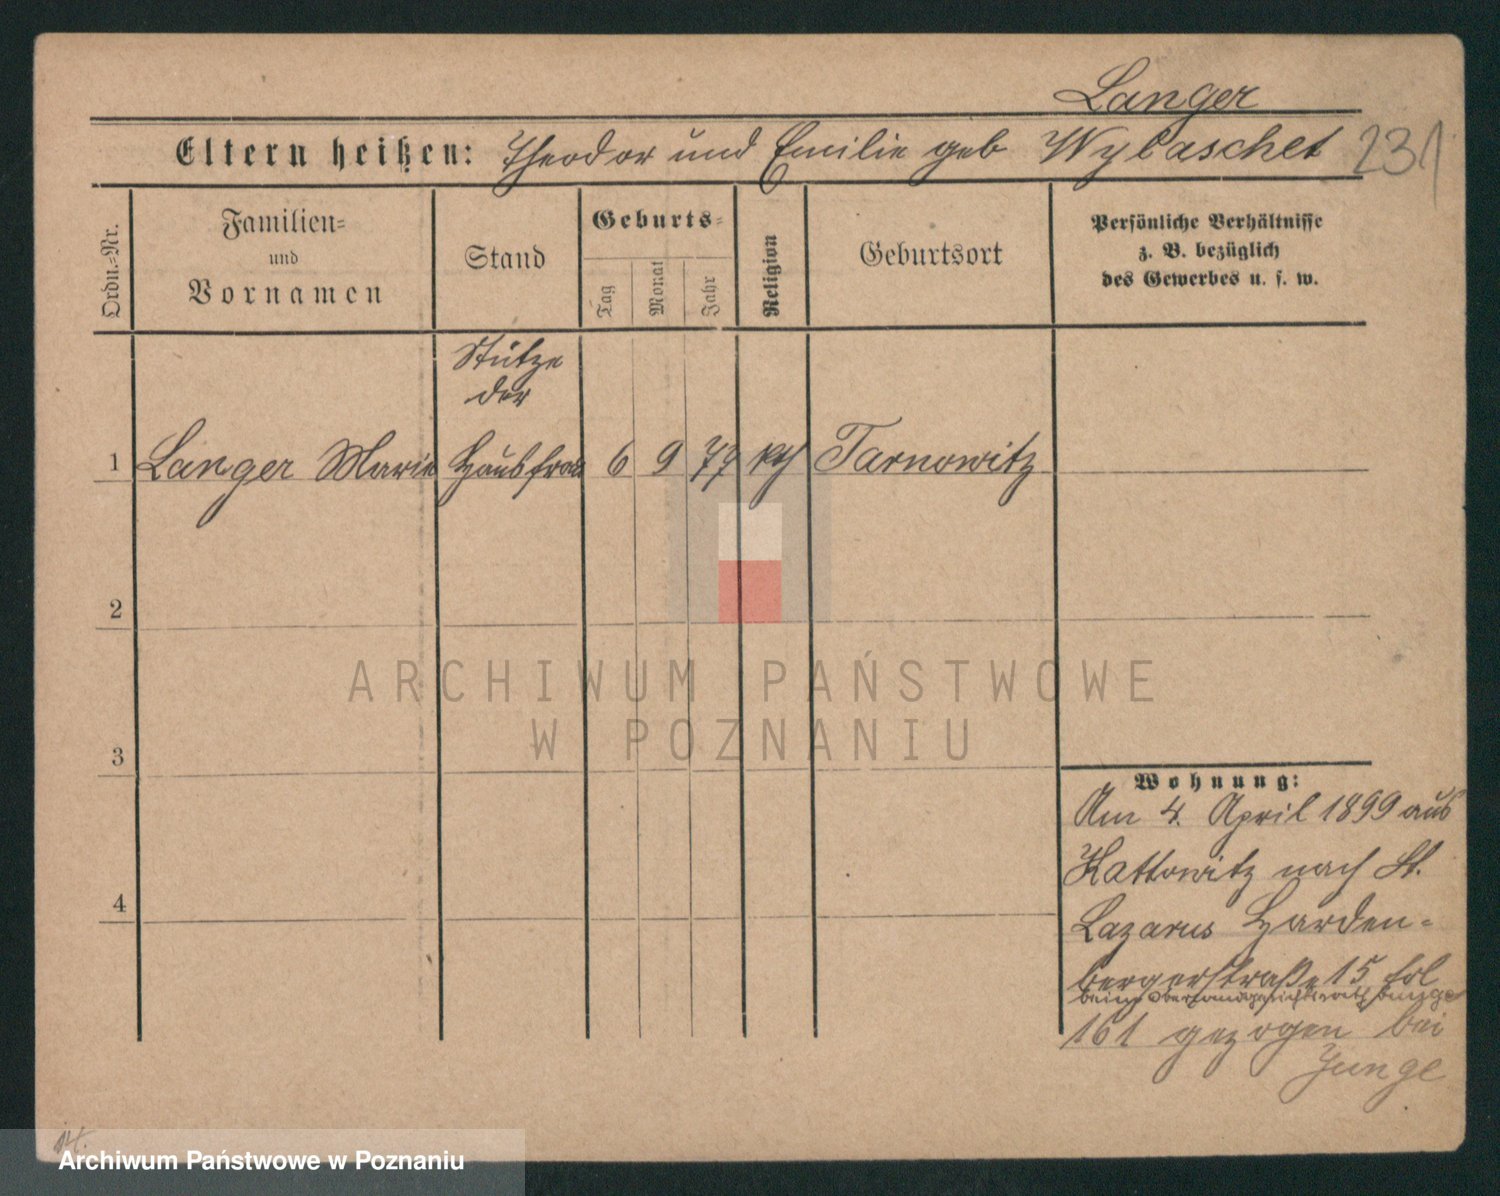 Langer
Eltern heißen: Theodor und Emilie geb Wylaschek 231
Ordn.=Nr.
Familien=
und
Vornamen
Stand
Geburts=
Tag
Monat
Jahr
Religion
Geburtsort
Persönliche Verhältnisse
z. B. bezüglich
des Gewerbes u. s. w.
Stütze
der
1 Langer Marie Hausfrau 6 9 77 kth Tarnowitz
2
ARCHIWUM PAŃSTWOWE
W POZNANIU
3
4
Wohnung:
Am 4. April 1899 aus
Kattowitz nach St.
Lazarus Harden-
bergerstraße 15 fol
beim Oberlandgerichtsrath Junge
161 gezogen bei
Junge
Archiwum Państwowe w Poznaniu